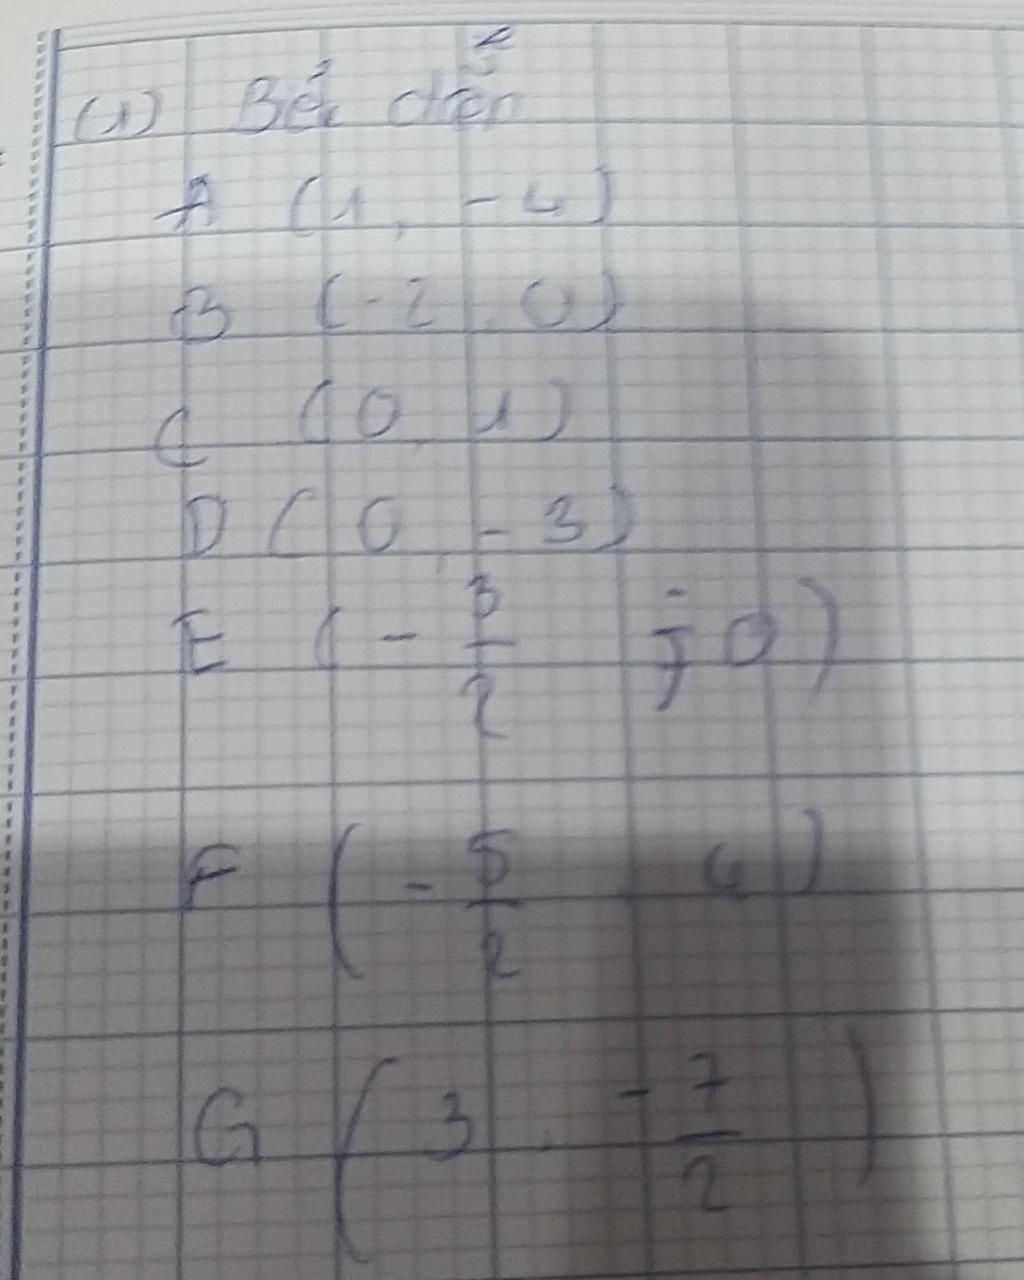 (1) Bểu diễn
A (1, -4)
B (-2, 0)
C (0, 1)
D (0, -3)
E (-3/2 ; 0)
F (-5/2, 4)
G (3, -7/2)